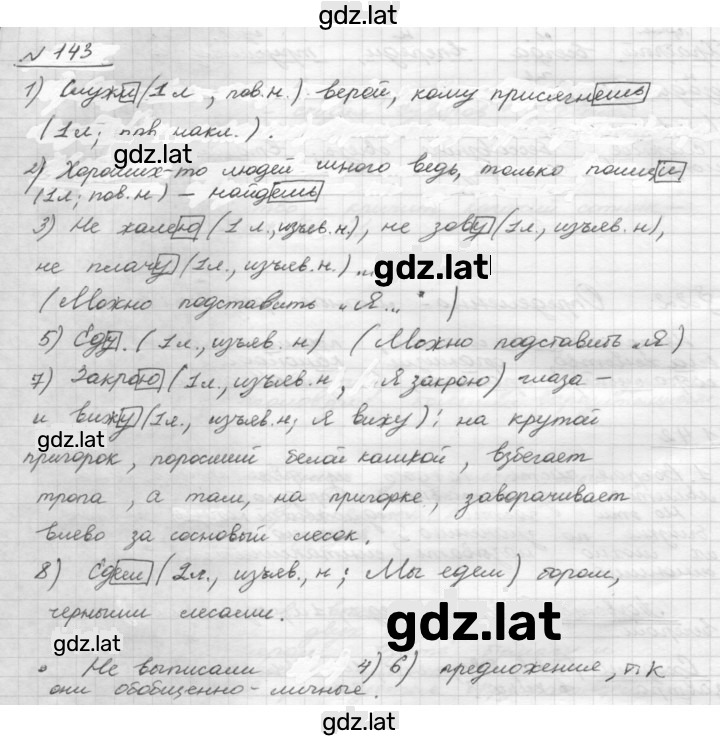 gdz.lat
№ 143
1) Служи (1л, пов.н.) верой, кому присягнешь
(1л; пов накл.).
gdz.lat
2) Хороших-то людей много ведь, только поищи
(1л; пов.н) – найдешь
3) Не жалею (1 л., изъяв.н.), не зову (1л., изъяв.н),
не плачу (1л., изъяв.н.)...
gdz.lat
(Можно подставить „Я..")
5) Еду. (1л., изъяв.н) (Можно подставить „Я)
7) Закрою (1л., изъяв.н, Я закрою) глаза –
и вижу (1л., изъяв.н; Я вижу): на крутой
gdz.lat
пригорок, поросший белой кашкой, взбегает
тропа, а там, на пригорке, заворачивает
влево за сосновый лесок.
8) Едем (2л., изъяв., н; Мы едем) бором,
черными лесами.
gdz.lat
gdz.lat
• Не выписали 4) 6) предложения, т.к
они обобщенно-личные.
gdz.lat